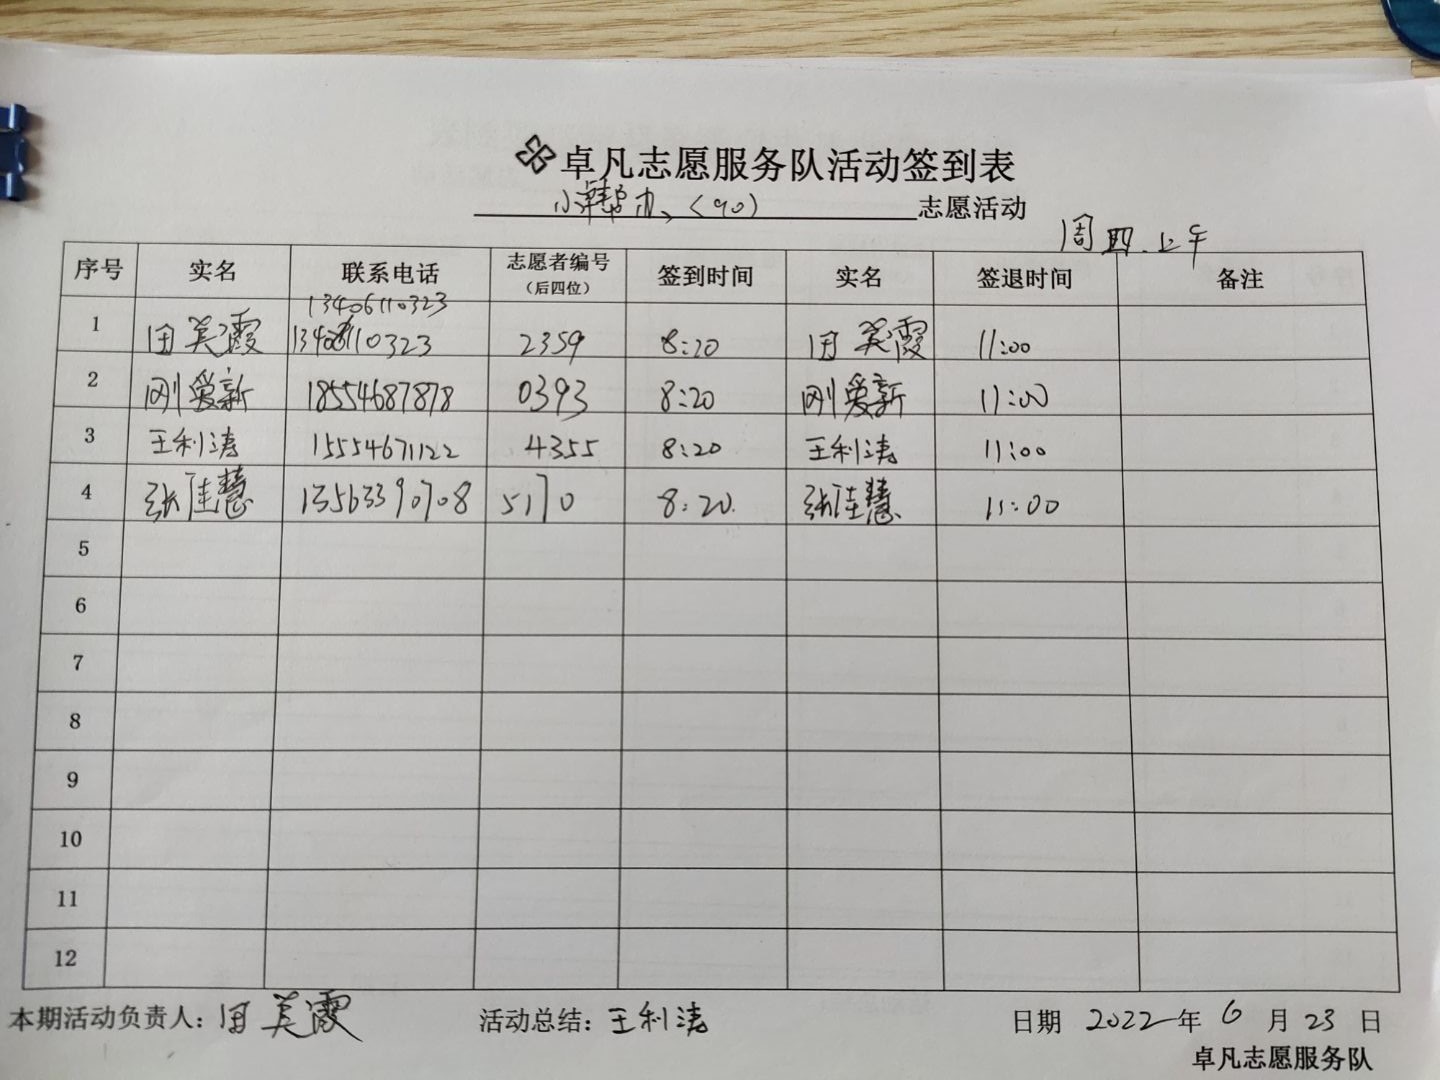 卓凡志愿服务队活动签到表
小卓帮办、(90) 志愿活动
周四.上午
序号 实名 联系电话 志愿者编号(后四位) 签到时间 实名 签退时间 备注
13406110323
1 田美霞 13406110323 2359 8:20 田美霞 11:00
2 刚爱新 18554687878 0393 8:20 刚爱新 11:00
3 王利涛 15554671122 4355 8:20 王利涛 11:00
4 张佳慧 13563390708 5170 8:20. 张佳慧 11:00
5
6
7
8
9
10
11
12
本期活动负责人: 田美霞 活动总结: 王利涛 日期 2022年 6 月 23 日
卓凡志愿服务队